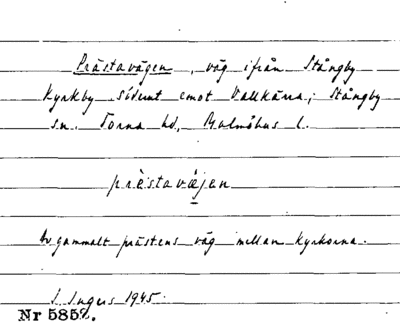 Prästavägen, väg ifrån Stångby
Kyrkby söderut emot Vallkärra; Stångby
sn. Torna hd, Malmöhus l.
prèstavæjen
Av gammalt prästens väg mellan kyrkorna.
I. Ingers 1945.
Nr 5852.